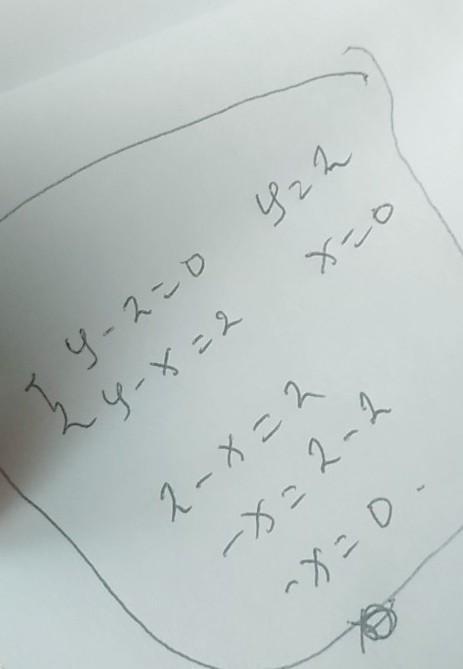 y-2=0 y=2
y-x=2 x=0
2-x=2
-x=2-2
-x=0.